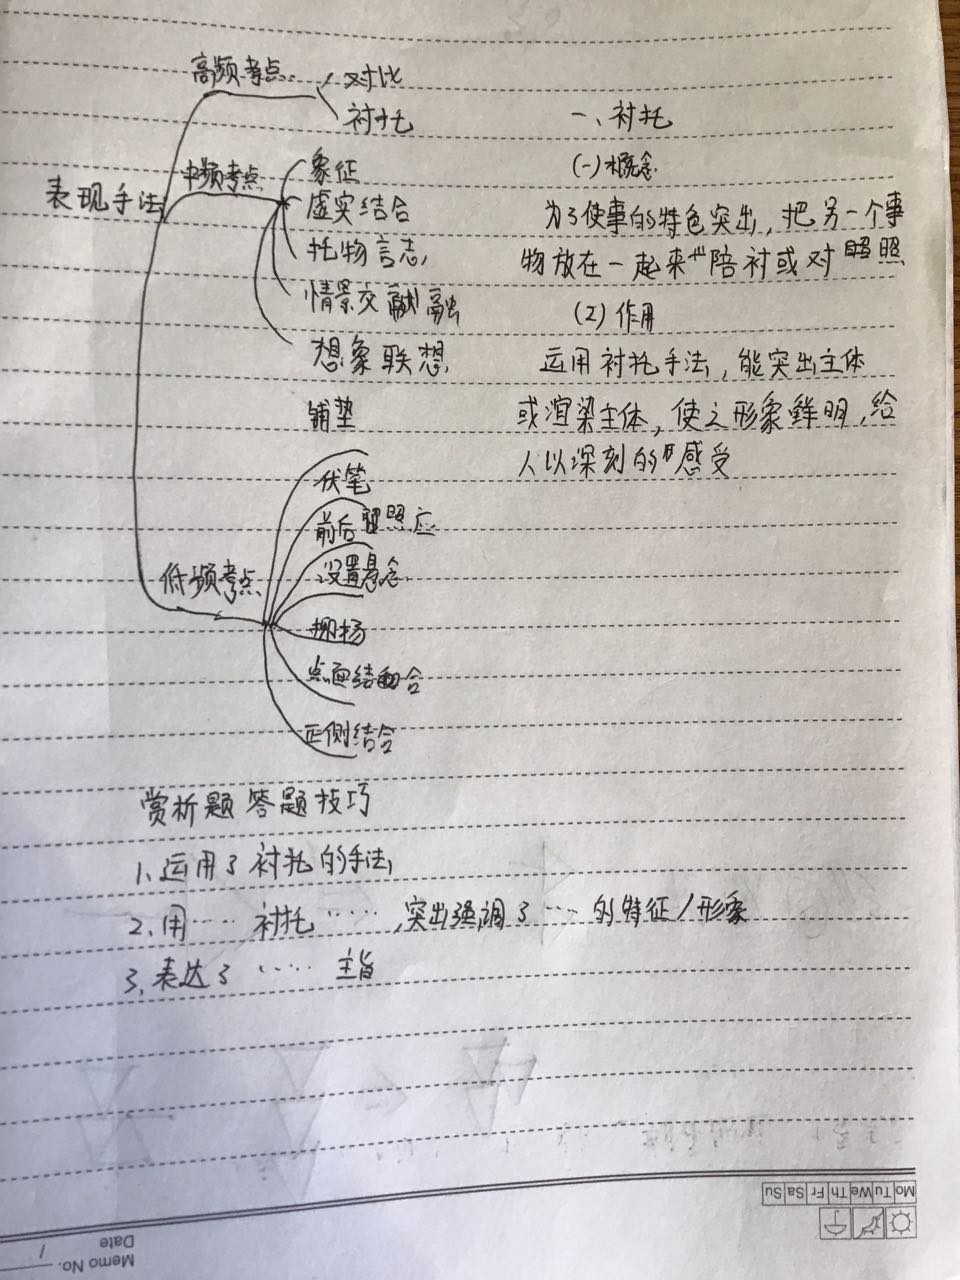 表现手法
高频考点
对比
衬托
中频考点
象征
虚实结合
托物言志
情景交融
想象联想
铺垫
低频考点
伏笔
前后照应
设置悬念
抑扬
点面结合
正侧结合
一、衬托
(一)概念
为了使事的特色突出，把另一个事
物放在一起来陪衬或对照
(2)作用
运用衬托手法，能突出主体
或渲染主体，使之形象鲜明，给
人以深刻的感受
赏析题答题技巧
1、运用了衬托的手法，
2、用…… 衬托……，突出强调了……的特征/形象
3、表达了…… 主旨
Mo Tu We Th Fr Sa Su
Memo No. 1
Date